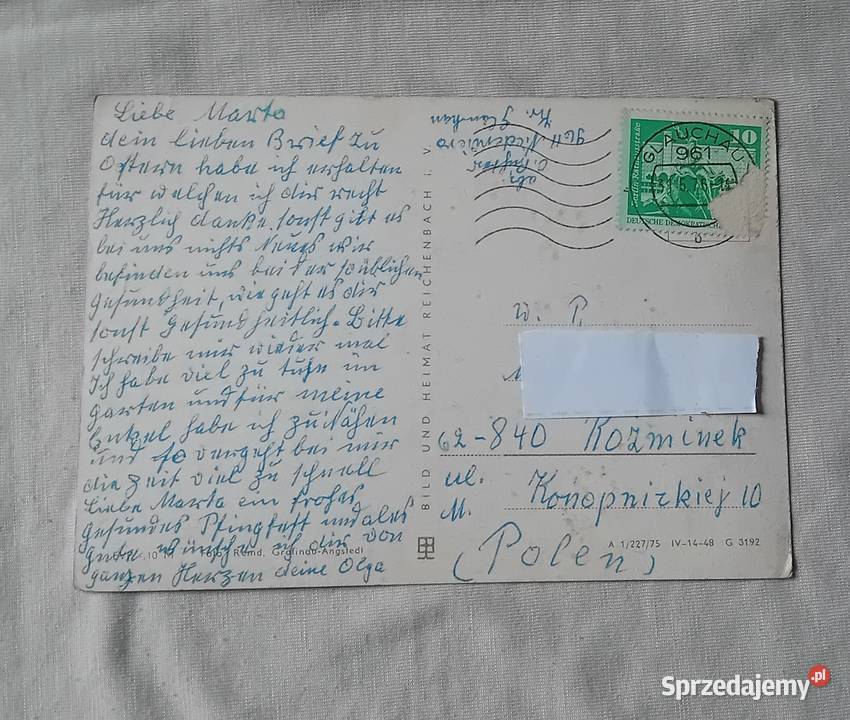 Liebe Marta
dein lieben Brief zu
Ostern habe ich erhalten
für welchen ich dir recht
Herzlich danke, sonst gibt es
bei uns nichts Neues wir
befinden uns bei der
Gesundheit, wie geht es dir
sonst Gesundheitlich. Bitte
schreibe mir wieder mal
Ich habe viel zu tuhn im
Garten und für meine
Enkel habe ich zu Nähen
und so vergeht bei mir
die Zeit viel zu schnell
Liebe Marta ein frohes
gesundes Pfingstfest und ales
gute wünscht ich dir von
ganzen Herzen deine Olga
Gräfinau-Angstedt
BILD UND HEIMAT REICHENBACH I. V.
abs.
GLAUCHAU
961
10
DEUTSCHE DEMOKRATISCHE
b
62-840 Koźminek
ul.
M. Konopnickiej 10
(Polen)
A 1/227/75 IV-14-48 G 3192
Sprzedajemy.pl